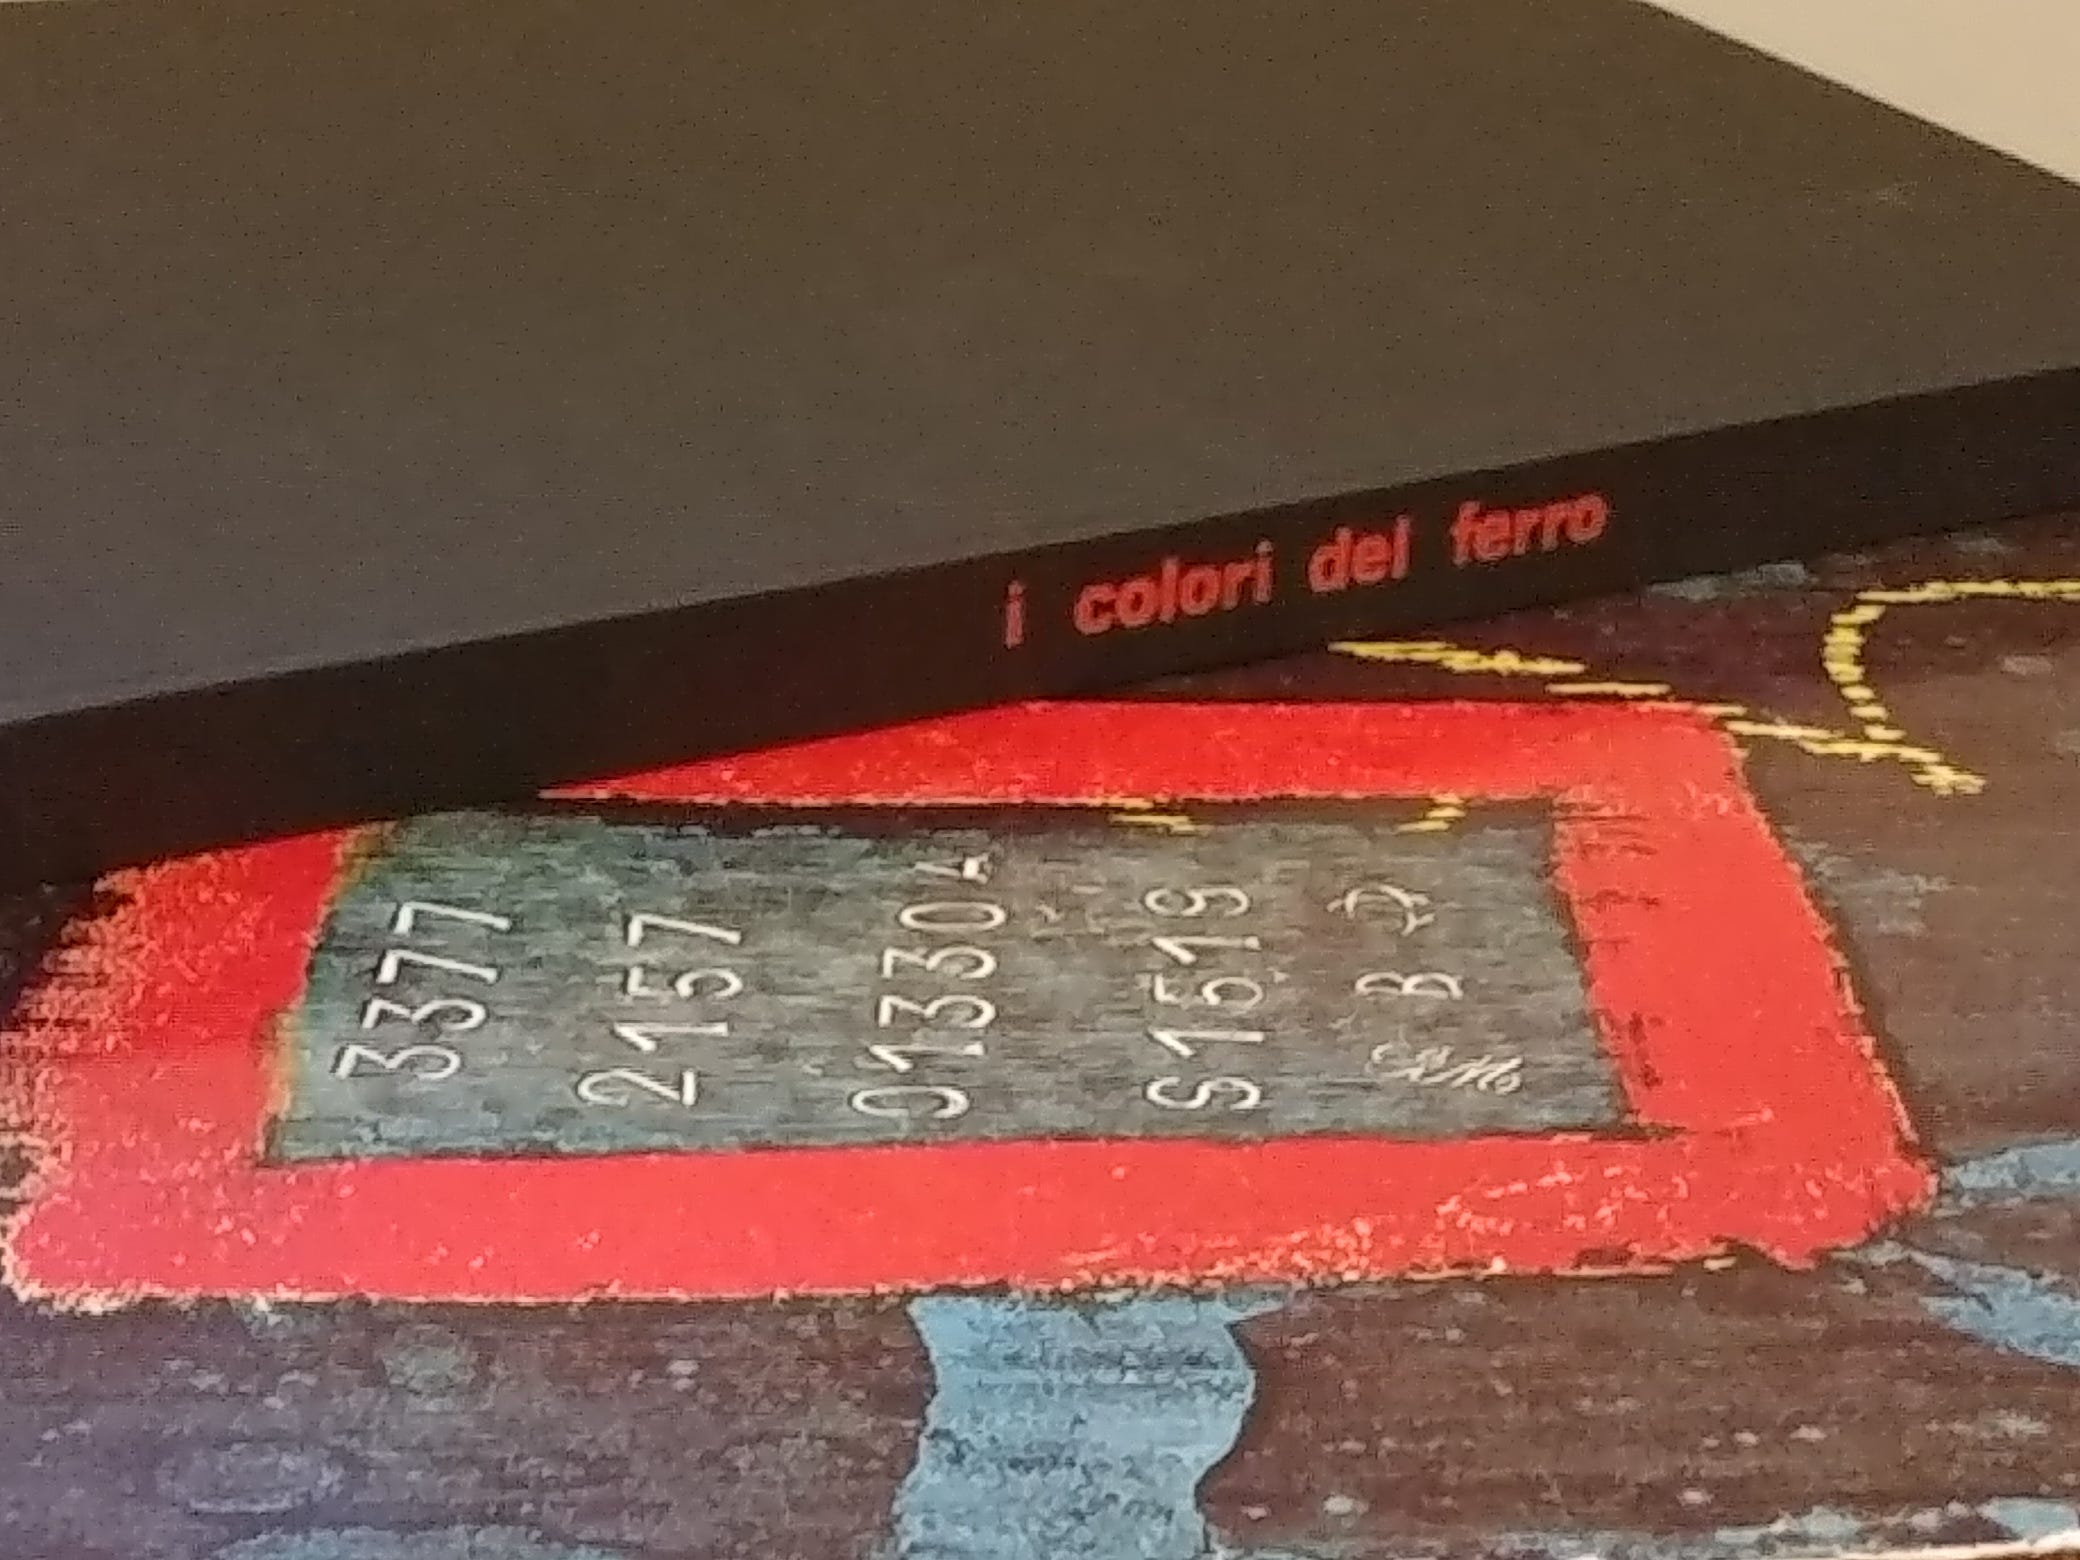 i colori del ferro
3377
2157
01330A
S1519
B